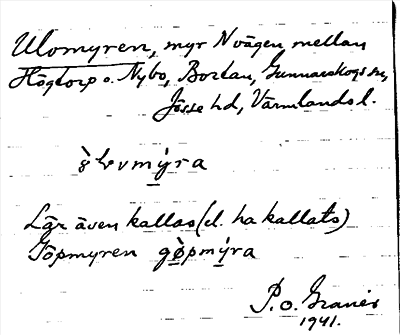 Ulomyren, myr N vägen mellan
Högtorp o. Nybo, Bortan, Gunnarskogs sn,
Jösse hd, Värmlands l.
myra
Lär även kallas (el. ha kallats)
Göpmyren gøpmyra
P. o. Graner
1941.